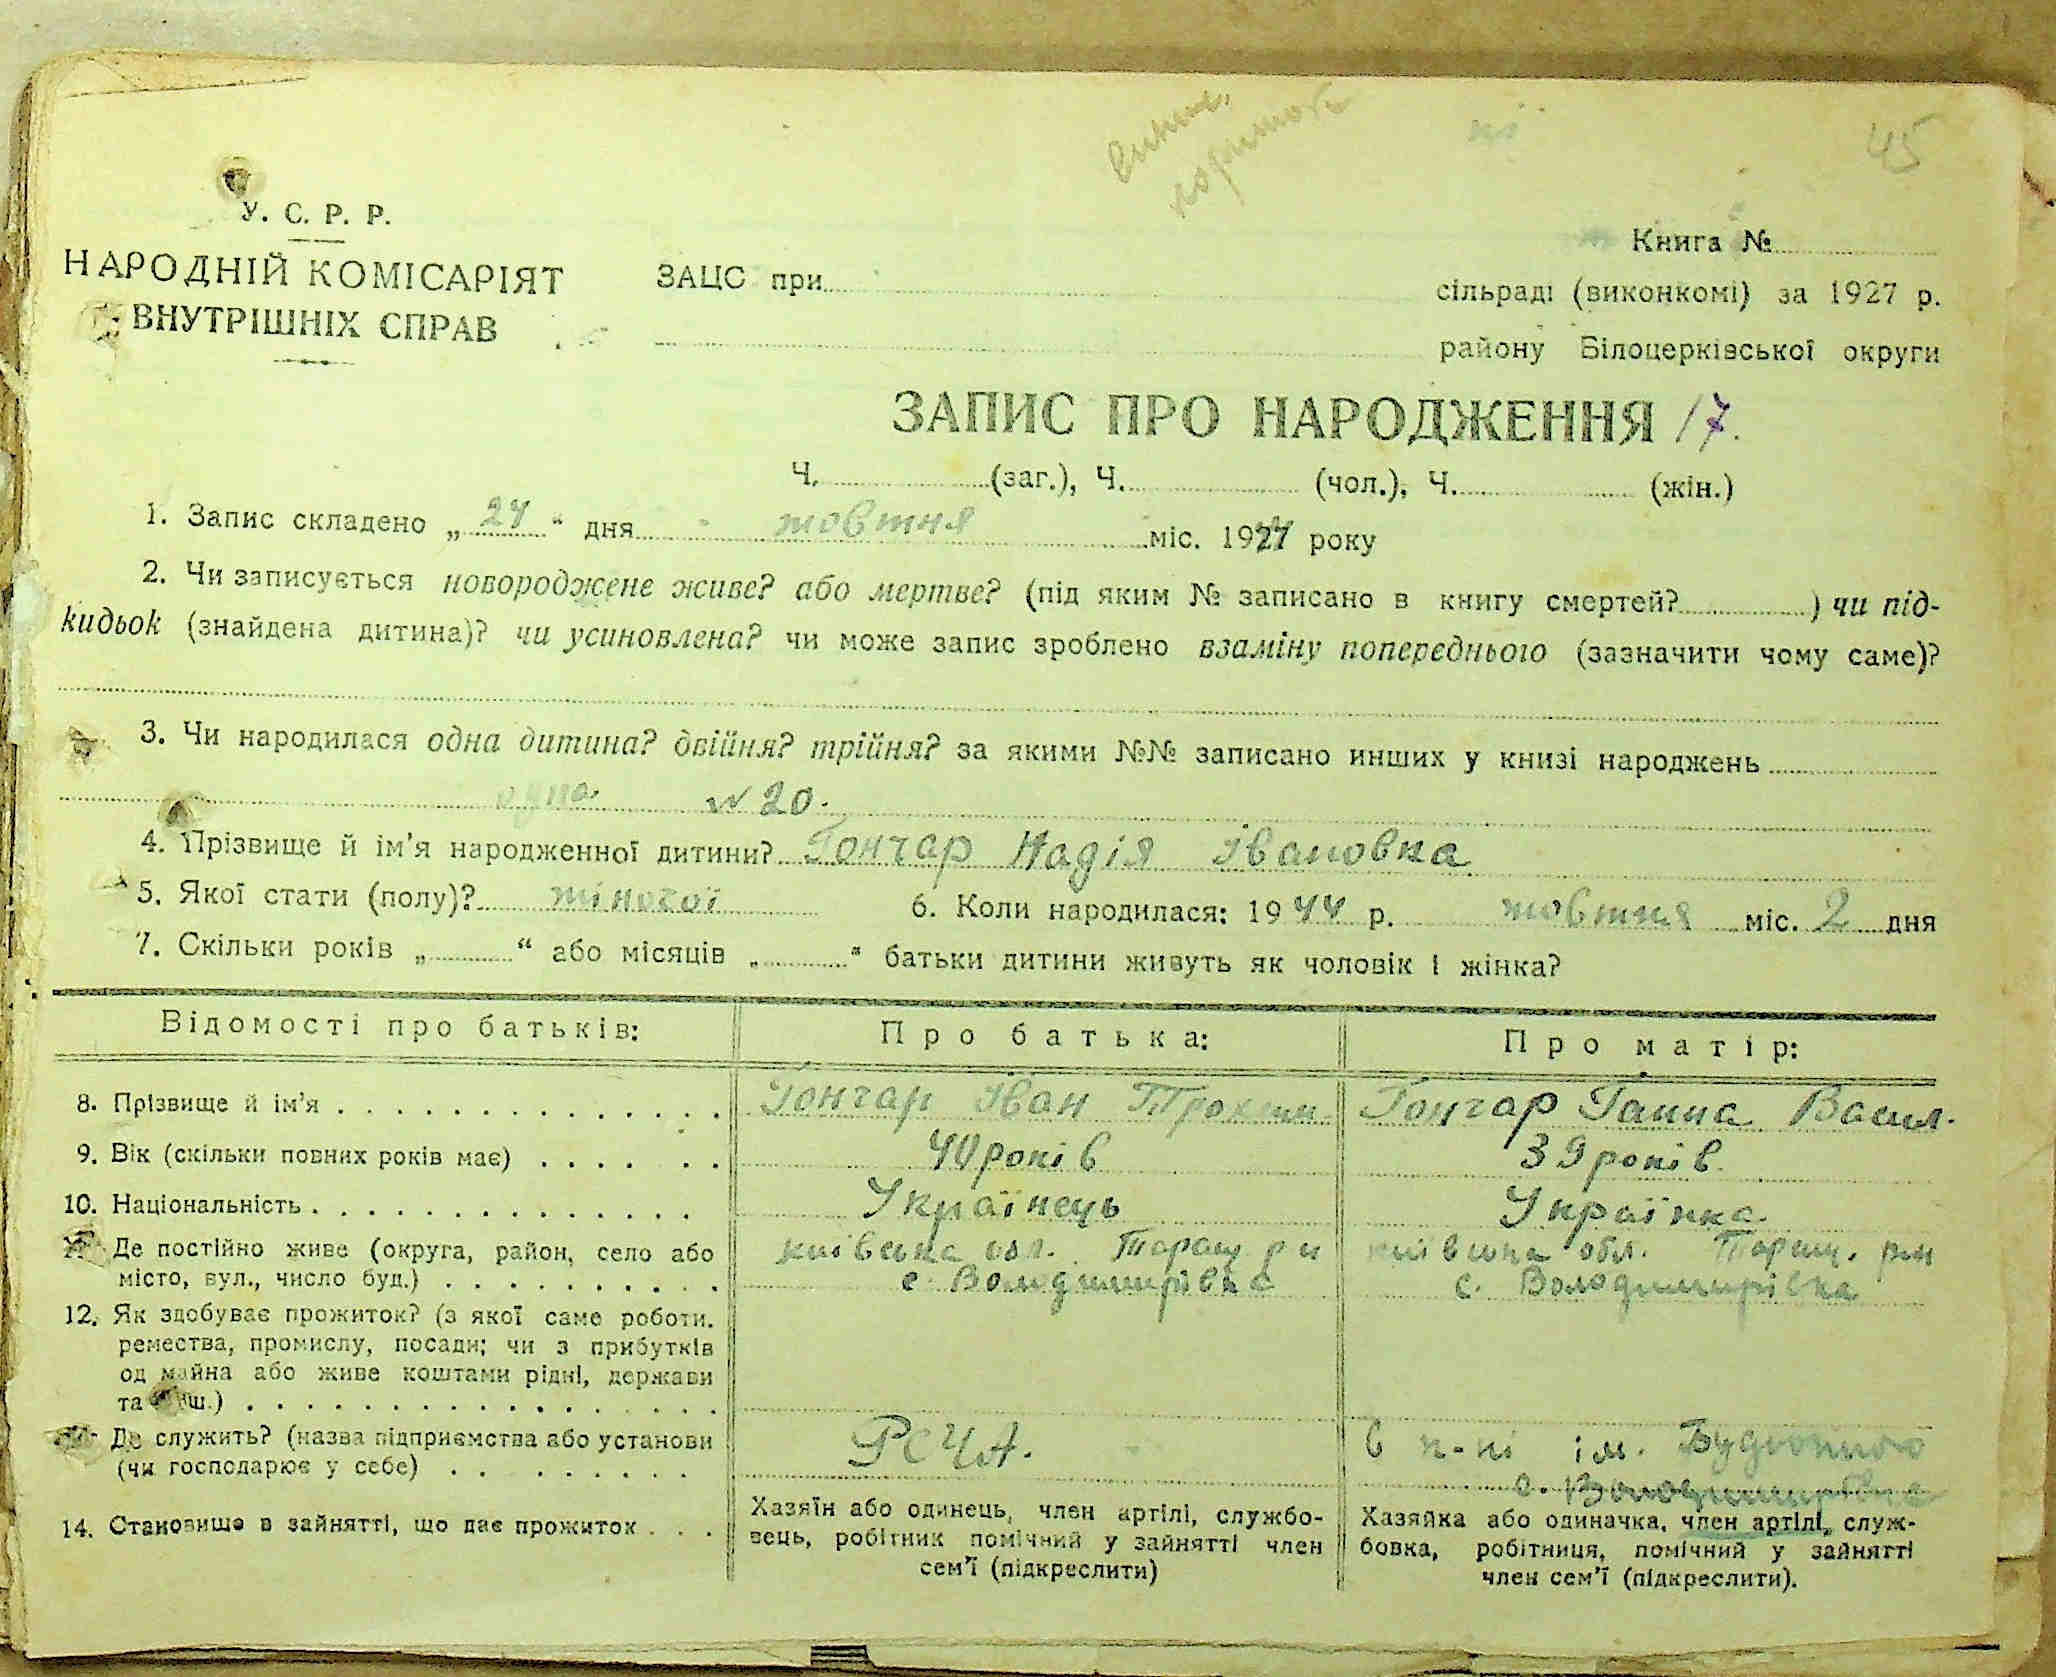 45
У. С. Р. Р.
НАРОДНІЙ КОМІСАРІЯТ
ВНУТРІШНІХ СПРАВ
Книга №
ЗАЦС при сільраді (виконкомі) за 1927 р.
району Білоцерківської округи
ЗАПИС ПРО НАРОДЖЕННЯ 17.
Ч. (заг.), Ч. (чол.), Ч. (жін.)
1. Запис складено „ 24 " дня жовтня міс. 1944 року
2. Чи записується новороджене живе? або мертве? (під яким № записано в книгу смертей? ) чи під-
кидьок (знайдена дитина)? чи усиновлена? чи може запис зроблено взаміну попереднього (зазначити чому саме)?
3. Чи народилася одна дитина? двійня? трійня? за якими №№ записано инших у книзі народжень
одна № 20.
4. Прізвище й ім'я народженної дитини? Гончар Надія Івановна
5. Якої стати (полу)? жіночої 6. Коли народилася: 1944 р. жовтня міс. 2 дня
7. Скільки років „ " або місяців „ " батьки дитини живуть як чоловік і жінка?
Відомості про батьків: Про батька: Про матір:
8. Прізвище й ім'я Гончар Іван Трохим. Гончар Ганна Васил.
9. Вік (скільки повних років має) 40 років 39 років.
10. Національність Українець Українка.
Де постійно живе (округа, район, село або київська обл. Таращ. р н київська обл. Таращ. р-н
місто, вул., число буд.) с. Володимирівка с. Володимирівка
12. Як здобуває прожиток? (з якої саме роботи,
ремества, промислу, посади; чи з прибутків
од майна або живе коштами рідні, держави
та инш.)
Де служить? (назва підприємства або установи РСЧА. в к-пі ім. Будьонного
(чи господарює у себе) с. Володимирівка
14. Становище в зайнятті, що дає прожиток
Хазяїн або одинець, член артілі, службо-
вець, робітник помічний у зайнятті член
сем'ї (підкреслити)
Хазяйка або одиначка, член артілі, служ-
бовка, робітниця, помічний у зайнятті
член сем'ї (підкреслити).